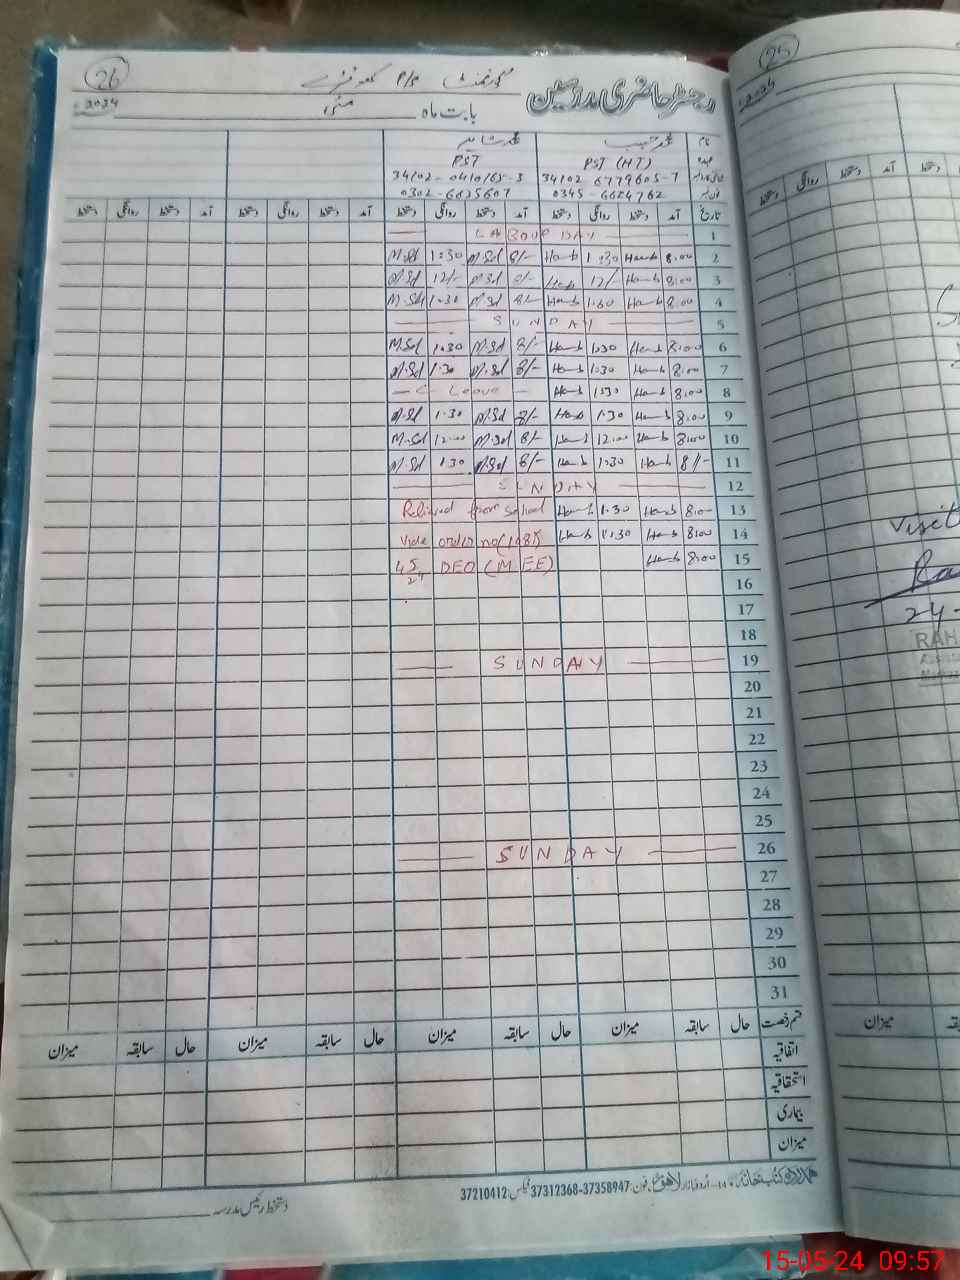 26
گورنمنٹ P/S
رجسٹر حاضری مدرسین
2024
بابت ماہ مئی
نام
عہدہ
PST PST (HT)
34102-0410165-3 34102-6779605-7
0302-6635607 0345-6624762
تاریخ آمد دستخط روانگی دستخط آمد دستخط روانگی دستخط آمد دستخط روانگی دستخط آمد دستخط روانگی دستخط
1 LABOUR DAY
2 8:00 Hamb 1:30 Hamb 8/- M.Sd 1:30 M.Sd
3 8:00 Hamb 12/- Hamb 8/- M.Sd 12/- M.Sd
4 8:00 Hamb 1:30 Hamb 8/- M.Sd 1:30 M.Sd
5 SUNDAY
6 8:00 Hamb 1:30 Hamb 8/- M.Sd 1:30 M.Sd
7 8:00 Hamb 1:30 Hamb 8/- M.Sd 1:30 M.Sd
8 8:00 Hamb 1:30 Hamb C-Leave
9 8:00 Hamb 1:30 Hamb 8/- M.Sd 1:30 M.Sd
10 8:00 Hamb 12:00 Hamb 8/- M.Sd 12:00 M.Sd
11 8/- Hamb 1:30 Hamb 8/- M.Sd 1:30 M.Sd
12 SUNDAY
13 8:00 Hamb 1:30 Hamb Relieved from school
14 8:00 Hamb 1:30 Hamb vide order no(1085
15 8:00 Hamb DEO (MEE)
16
17
18
19 SUNDAY
20
21
22
23
24
25
26 SUNDAY
27
28
29
30
31
قسم رخصت حال سابقہ میزان حال سابقہ میزان حال سابقہ میزان حال سابقہ میزان
اتفاقیہ
استحقاقیہ
بیماری
میزان
اردو بازار لاہور فون: 37358947-37312368 فیکس: 37210412
دستخط رئیس مدرسہ
25
آمد دستخط روانگی دستخط
Visit
24-
RAH
میزان
15-05-24 09:57